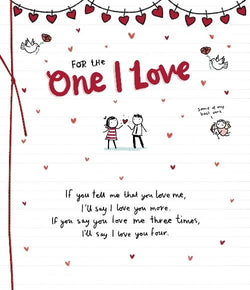 FOR THE
One I Love
some of my
best work
If you tell me that you love me,
I'll say I love you more.
If you say you love me three times,
I'll say I love you four.